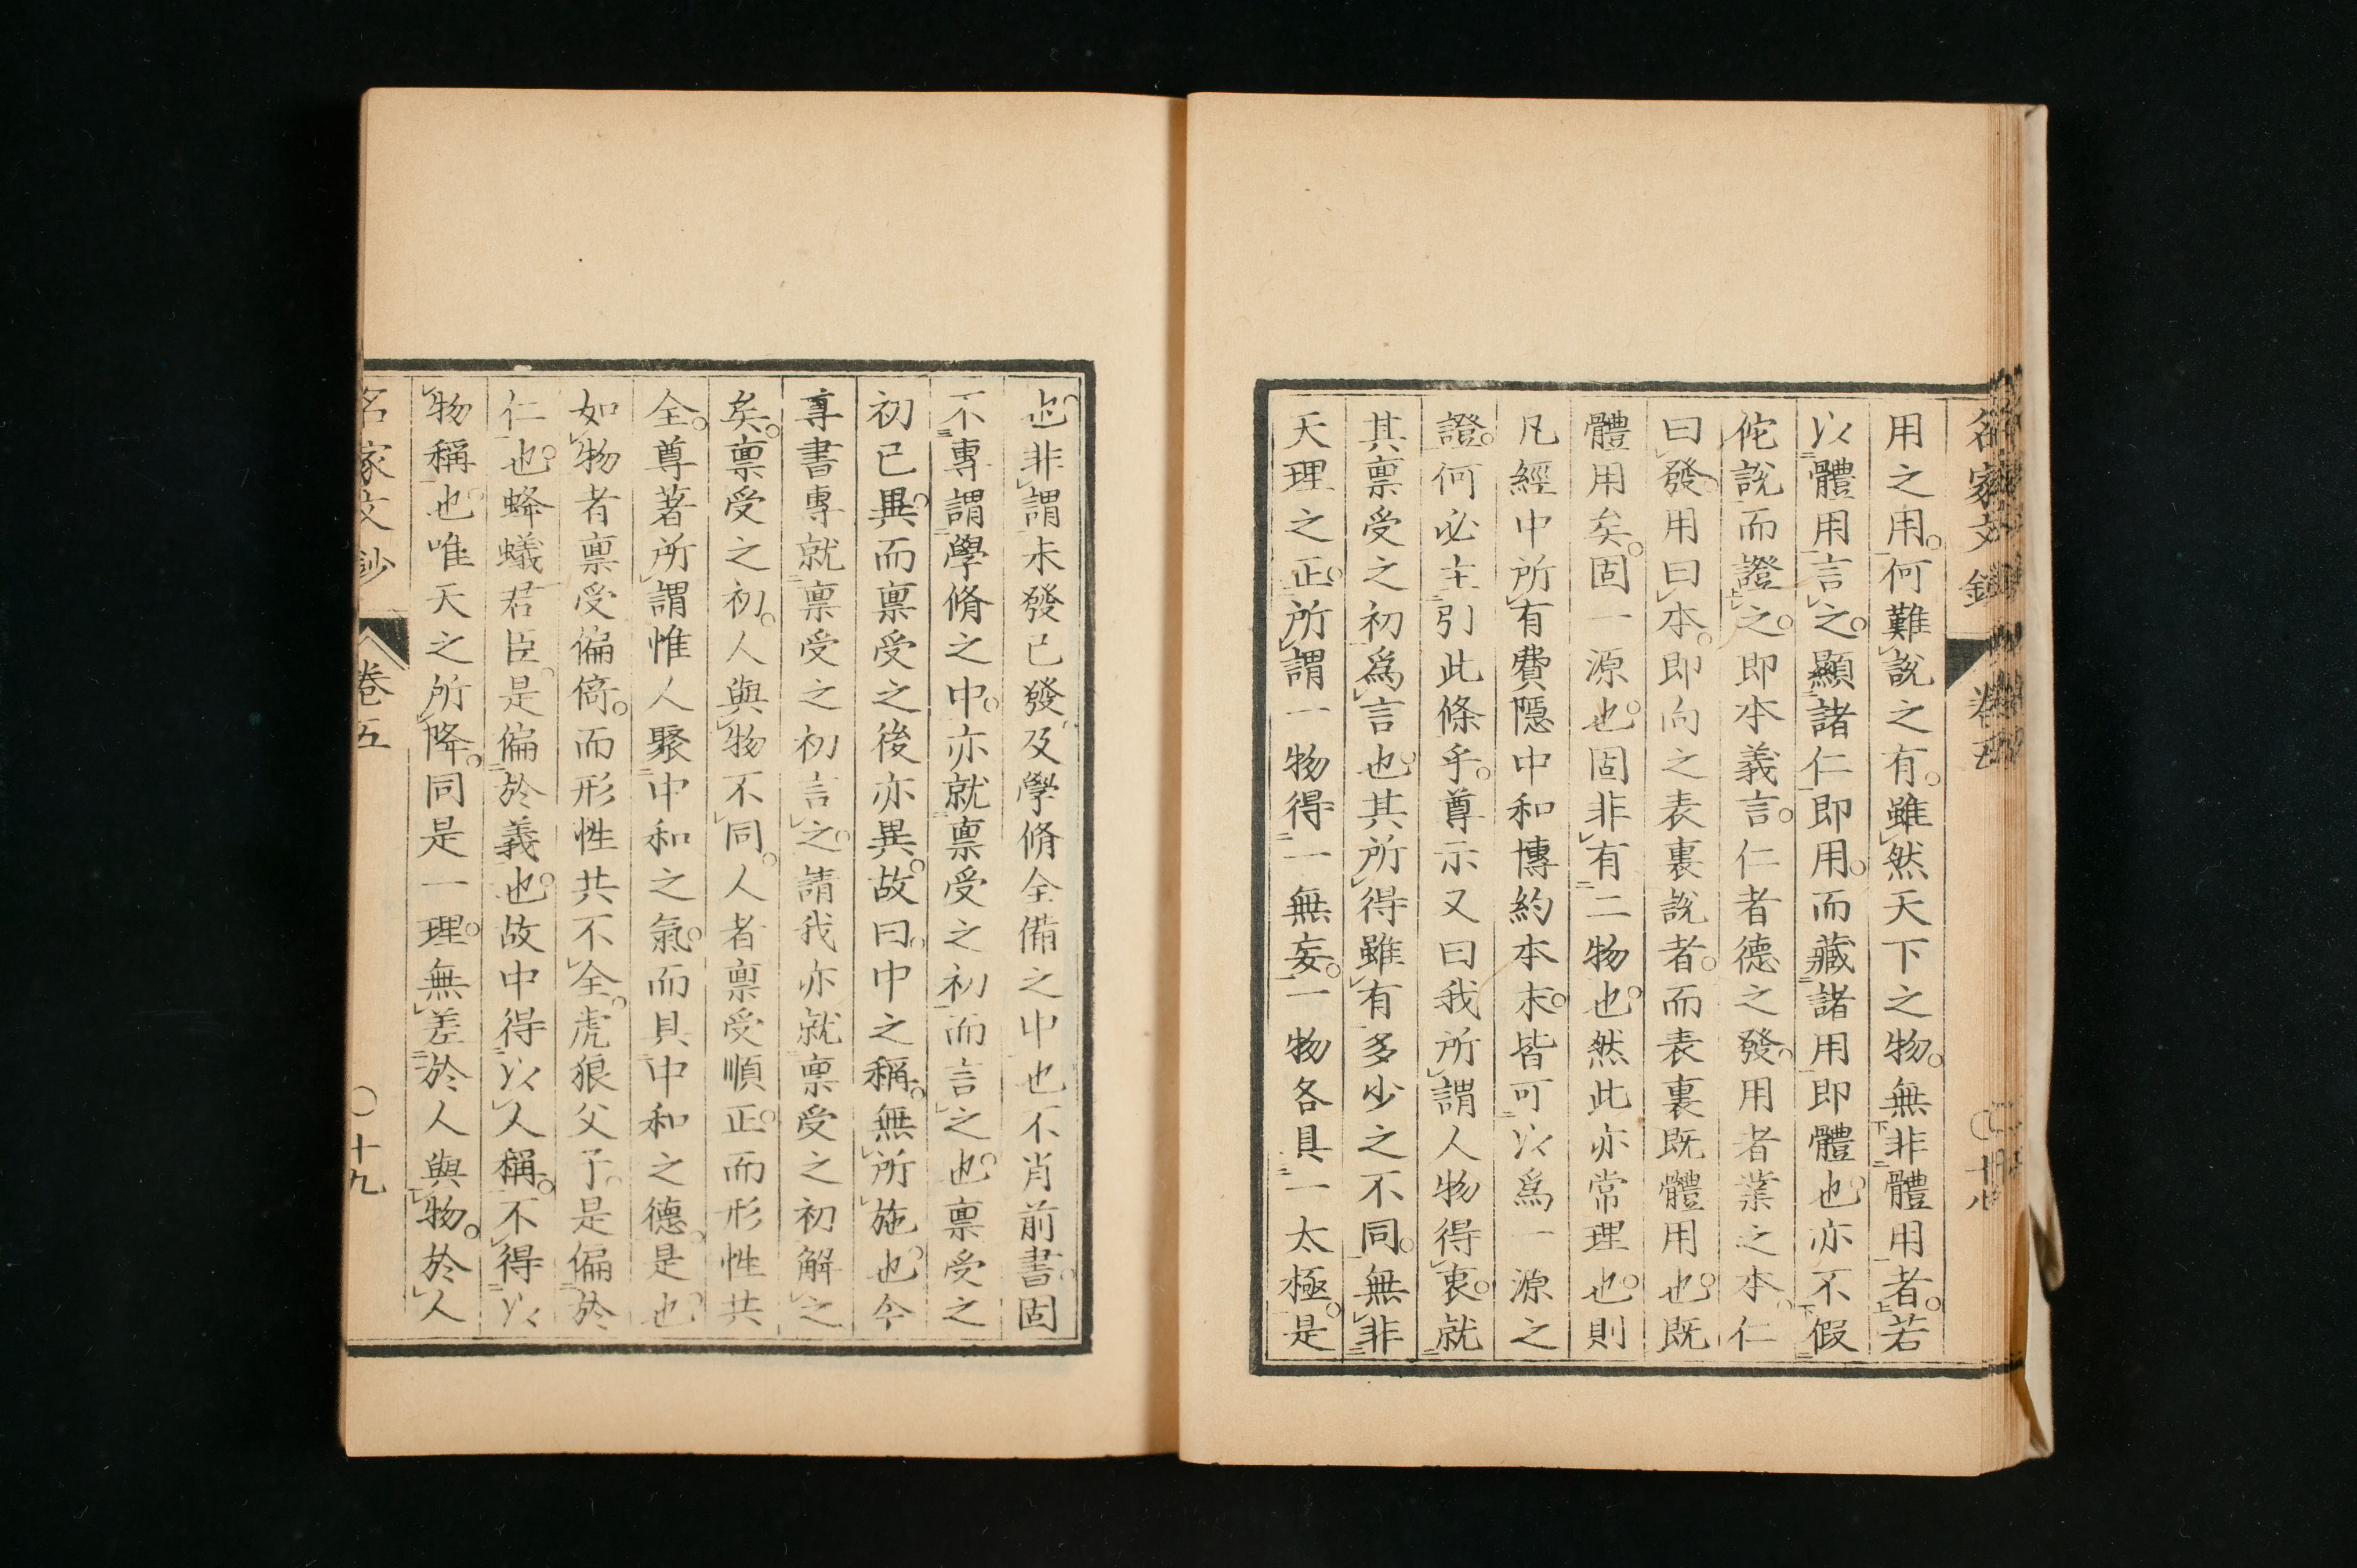 用之用。何難說之有。雖然天下之物。無非體用者。若
以體用言之。顯諸仁即用。而藏諸用即體也。亦不假
佗說而證之。即本義言。仁者德之發。用者業之本。仁
曰發用曰本。即向之表裏說者。而表裏既體用也。既
體用矣。固一源也。固非有二物也。然此亦常理也。則
凡經中所有費隱中和博約本末。皆可以爲一源之
證。何必主引此條乎。尊示又曰我所謂人物得衷。就
其禀受之初爲言也。其所得雖有多少之不同。無非
天理之正。所謂一物得一無妄。一物各具一太極。是
也。非謂未發已發及學脩全備之中也不肖前書。固
不專謂學脩之中。亦就禀受之初而言之也。禀受之
初已異。而禀受之後亦異。故曰。中之稱。無所施也。今
尊書專就禀受之初言之。請我亦就禀受之初解之
矣。禀受之初。人與物不同。人者禀受順正。而形性共
全。尊著所謂惟人聚中和之氣。而具中和之德。是也。
如物者禀受偏倚。而形性共不全。虎狼父子。是偏於
仁也。蜂蟻君臣。是偏於義也。故中得以人稱。不得以
物稱也。唯天之所降。同是一理。無差於人與物。於人
名家文鈔 卷五 〇十九